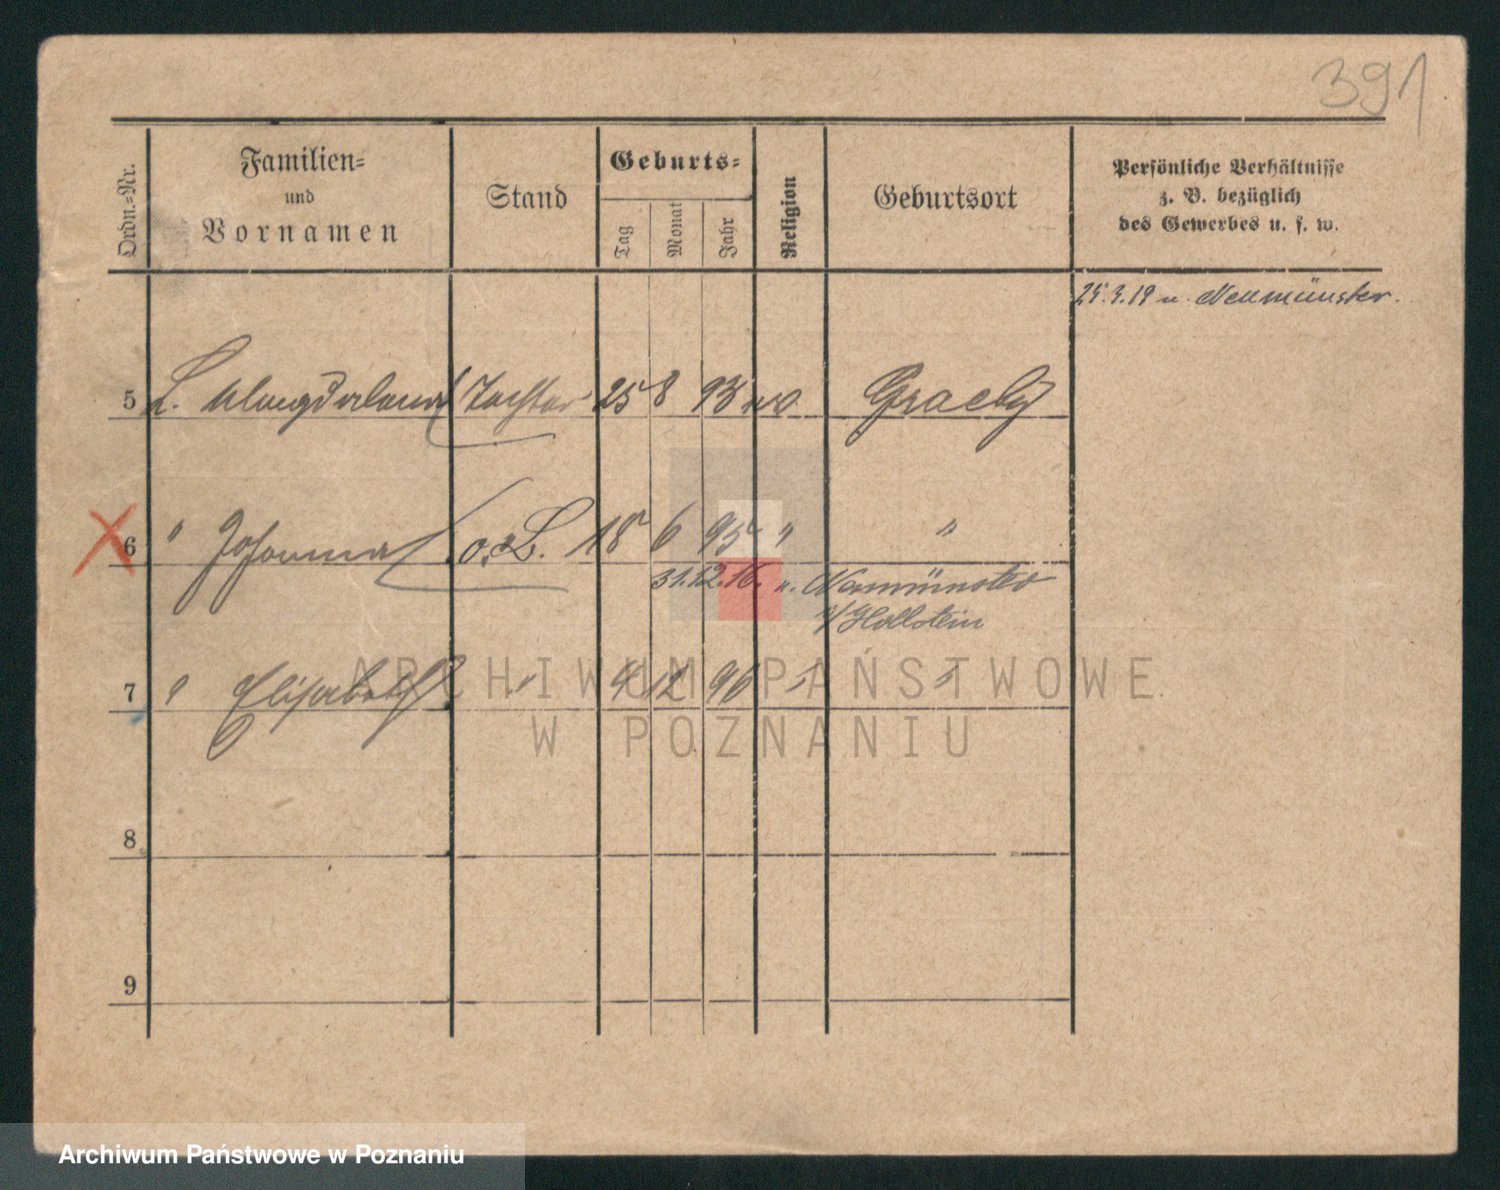 391
Ordn.-Nr.
Familien-
und
Vornamen
Stand
Geburts-
Tag
Monat
Jahr
Religion
Geburtsort
Persönliche Verhältnisse
z. B. bezüglich
des Gewerbes u. s. w.
25.3.19 n. Neumünster.
5 L. Tochter 25 8 93
6 " Johanna o. B. 18 6 95 " "
31.12.16. n. Neumünster
i/Hollstein
7 " Elisabeth " 4 12 96 " "
8
9
ARCHIWUM PAŃSTWOWE
W POZNANIU
Archiwum Państwowe w Poznaniu